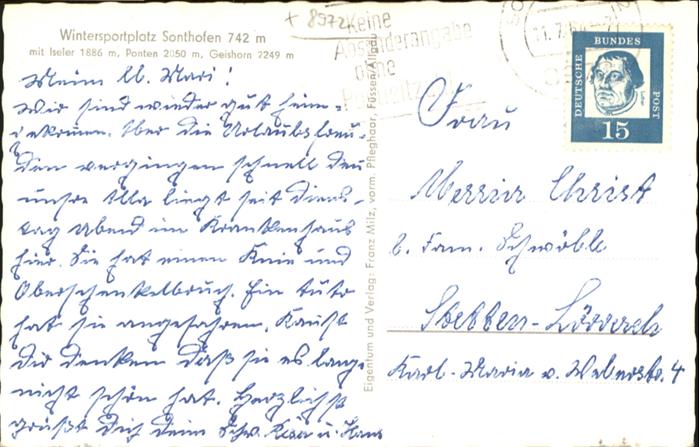 Wintersportplatz Sonthofen 742 m
mit Iseler 1886 m, Ponten 2050 m, Geishorn 2249 m
+ 8972
Keine
Absenderangabe
ohne
Postleitzahl
11.7.
DEUTSCHE BUNDES POST
15
Meine lb. Mari!
Wir sind wieder gut heim-
gekommen. Aber die Urlaubsfreu-
den vergingen schnell den
unsre Ella liegt seit Diens-
tag Abend im Krankenhaus
hier. Sie hat einen Knie und
Oberschenkelbruch. Ein Auto
hat sie angefahren. Kannst
Dir denken daß sie es lange
nicht schön hat. Herzlichst
grüßt Dich Deine Schw. u. Hans
Eigentum und Verlag: Franz Milz, vorm. Pfleghaar, Füssen/Allgäu
Frau
Christ
b. Fam. Schwöble
Stetten-Lörrach
Karl-Maria v. Weberstr. 4